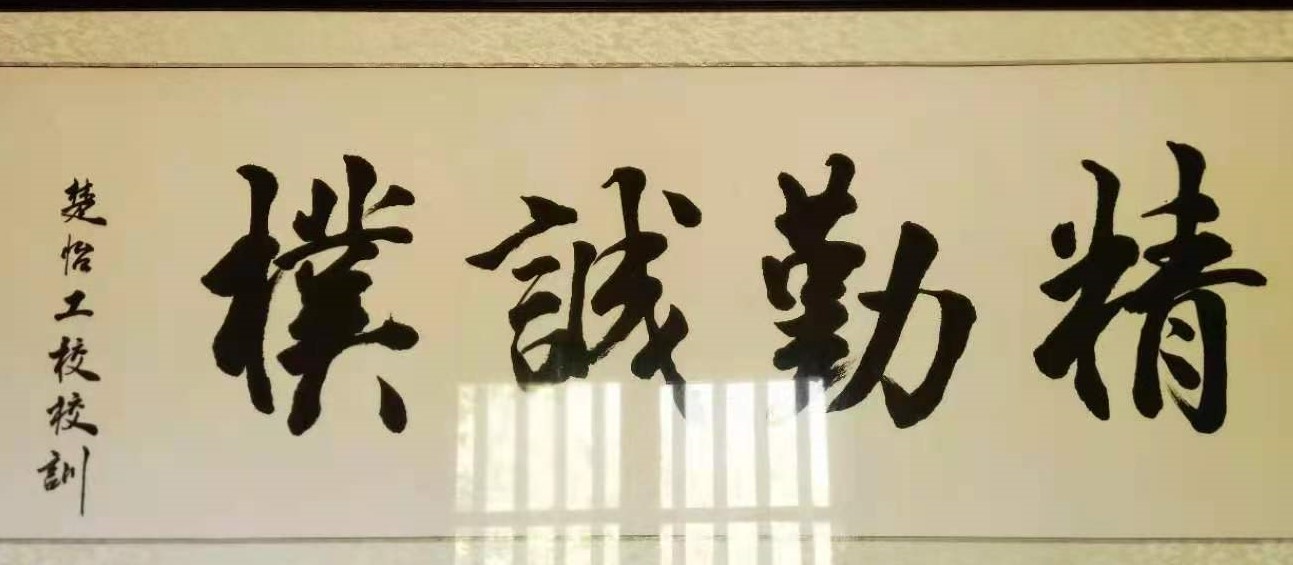 精勤誠樸
楚怡工校校訓